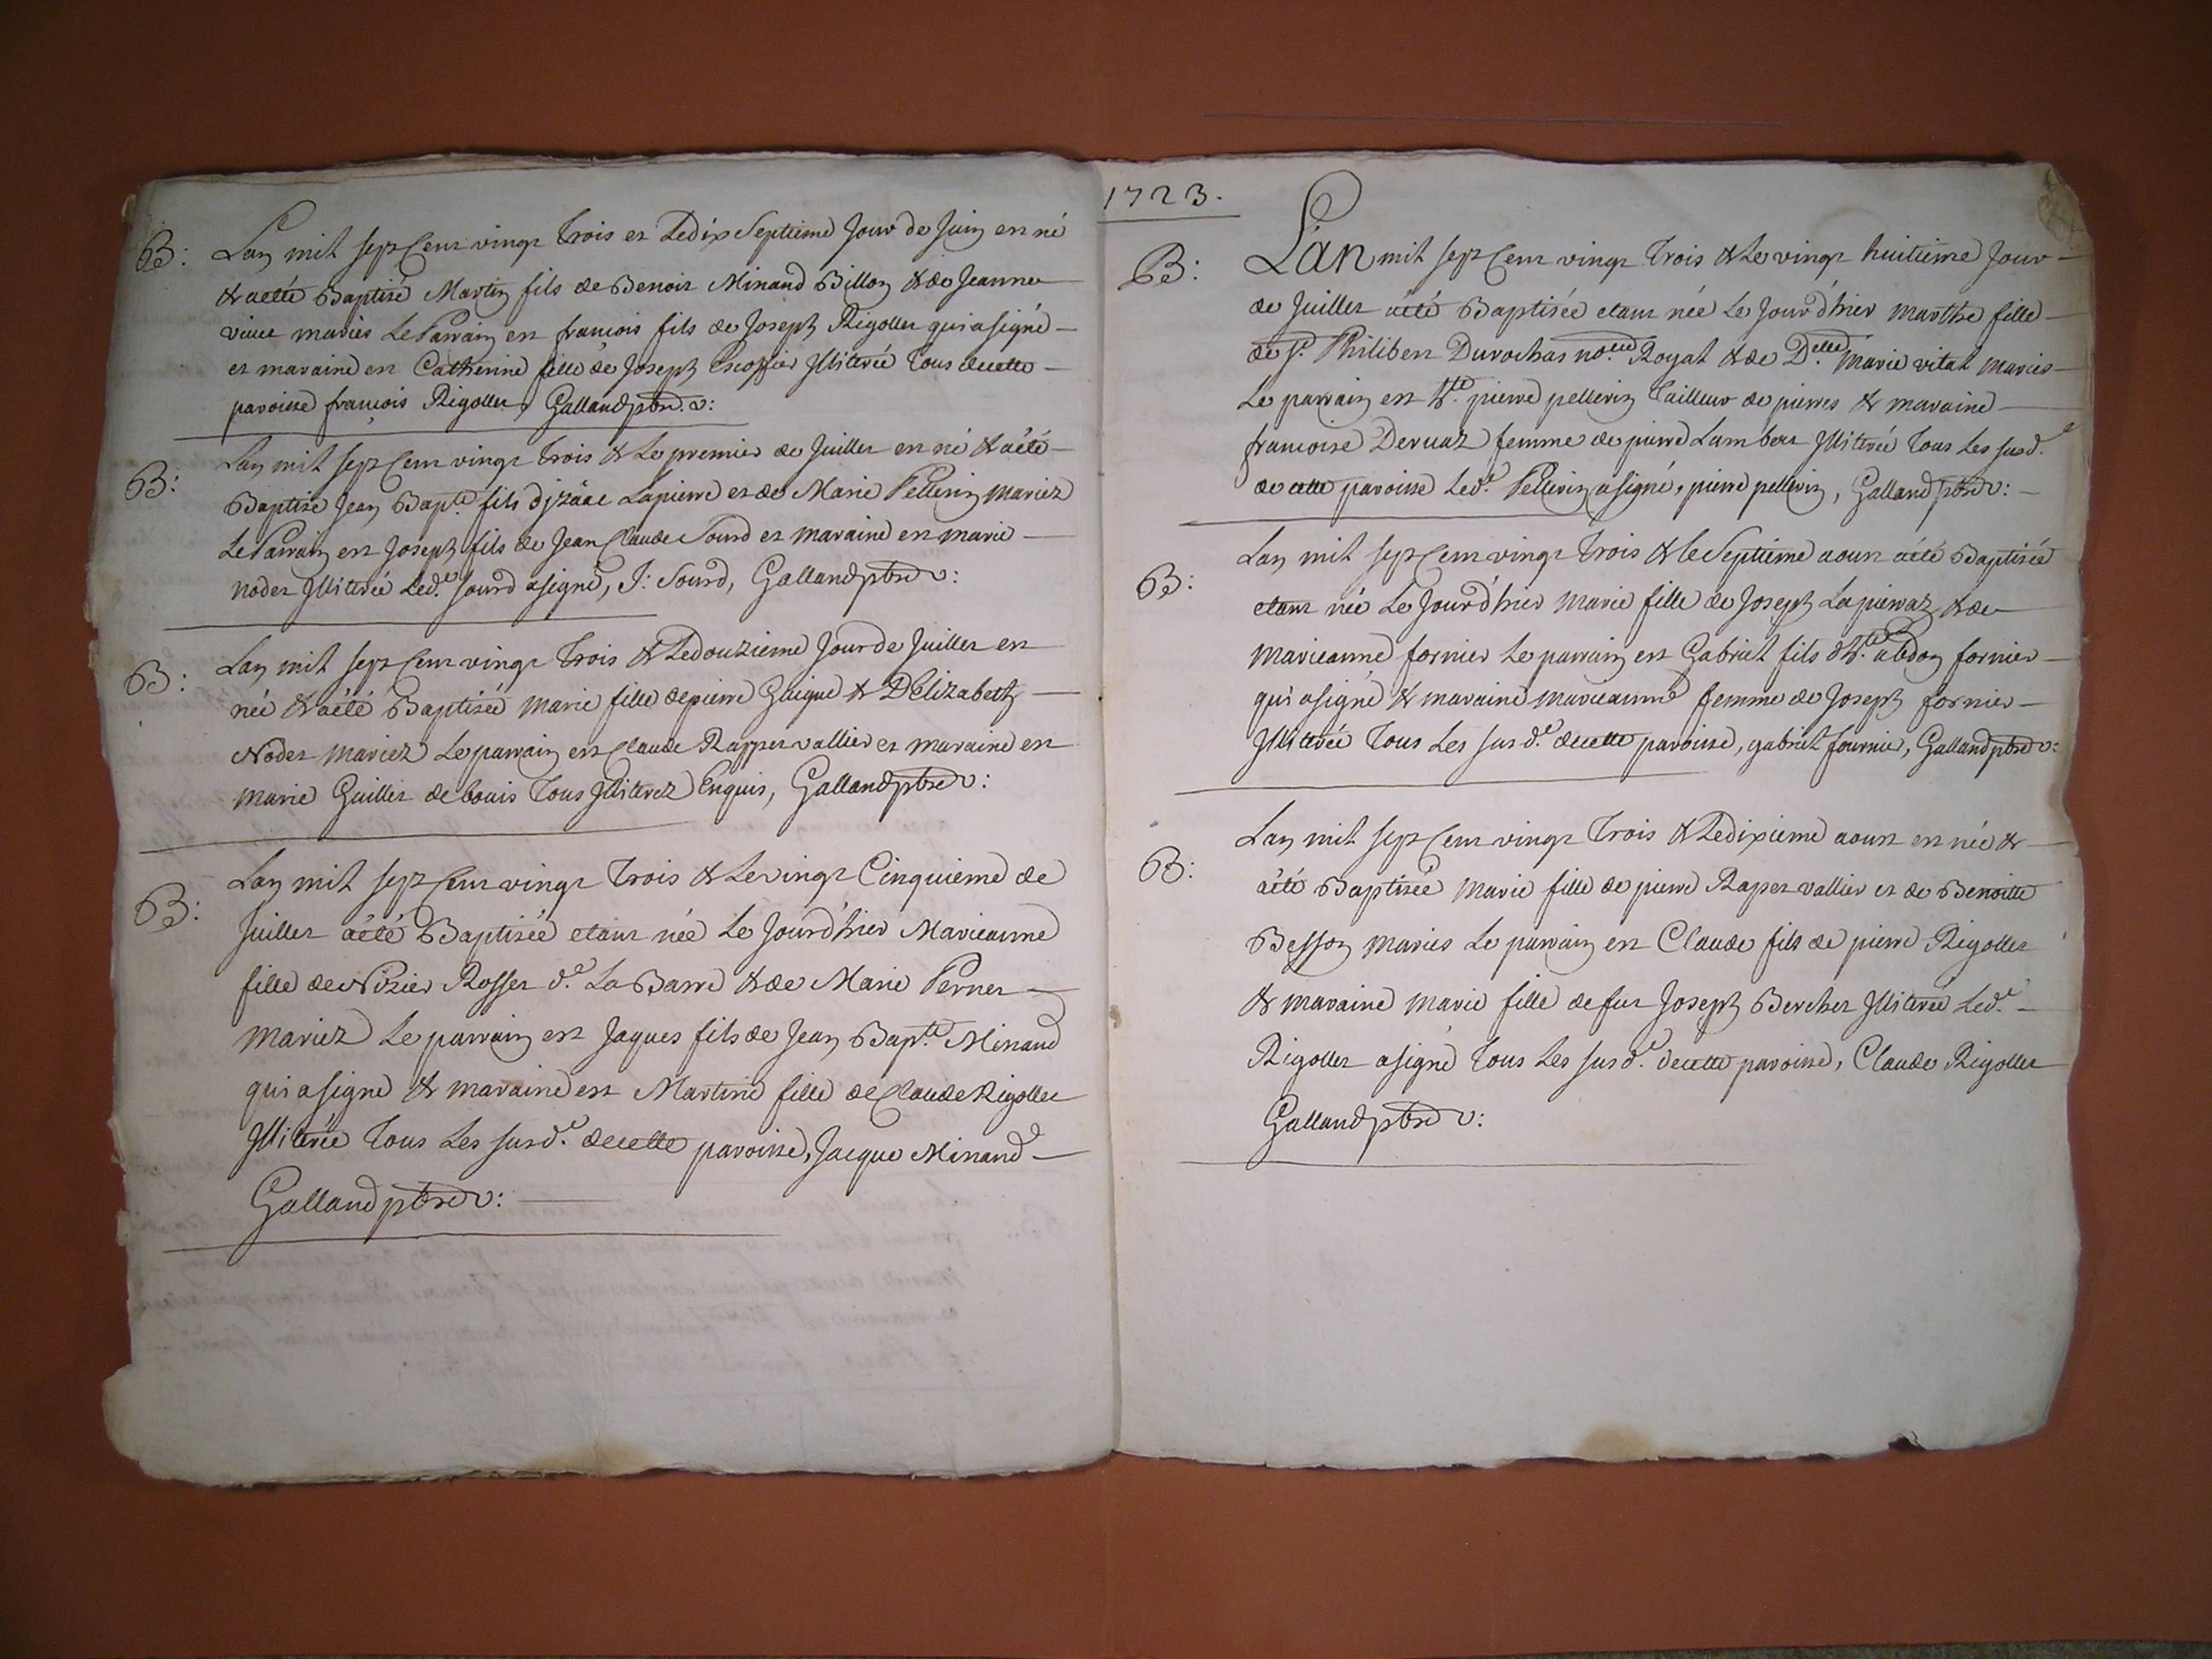 B: Lan mil sept Cent vingt Trois et Ledix Septieme Jour de Juin est né
& aetté Baptisé Martin fils de Benoit Minand Billon & de Jeanne
mariés Le Parrain est francois fils de Joseph Rigollet qui asigné
et maraine est Catherine fille de Joseph Escoffier Jlliterée Tous decette
paroisse francois Rigollet, Galland ptre. v:
B: Lan mil sept Cent vingt Trois & Le premier de Juillet est né & aété
Baptisé Jean Bapte. fils djzâac Lapierre et de Marie Pellerin Mariez
Le Parrain est Joseph fils de Jean Claude Sourd et maraine est marie
nodet Jlliterée Led.e Sourd asigné, J: Sourd, Galland ptre v:
B: Lan mil sept Cent vingt Trois & Ledouzieme Jour de Juillet est
née & aété Baptisée marie fille depierre Guigue & DElizabeth
Nodet mariez Le parrain est Claude Rappet vallier et maraine est
marie Guillet de bouis Tous Jlliterez Enquis, Galland ptre v:
B: Lan mil sept Cent vingt Trois & Levingt Cinquieme de
Juillet aété Baptisée etant née Le Jourd'hier Marieanne
fille de Nizier Rosset d.e La Barre & de Marie Pernet
mariez Le parrain est Jaques fils de Jean Bapte. Minand
qui asigné & maraine est Martine fille de Claude Rigollet
Jlliterée Tous Les susd.e decette paroisse, Jacque Minand
Galland ptre v:
1723.
B: L'an mil sept Cent vingt Trois & Le vingt huitieme Jour
de Juillet aété Baptisée etant née Le Jour d'hier marthe fille
de Sr. Philibert Durochat no.re Royal & de D.elle marie vital mariés
Le parrain est h.te pierre pellerin Tailleur de pierres & maraine
francoise Dervaz femme de pierre Lambert Jlliterée Tous Les susd.e
de cette paroisse Led.e Pellerin asigné, pierre pellerin, Galland ptre v:
B: Lan mil sept Cent vingt Trois & le Septieme aoust aété Baptisée
etant née Le Jourd'hier marie fille de Joseph Lapierraz & de
marieanne fornier Le parrain est Gabriel fils d'h.te abdon fornier
qui asigné & maraine marieanne femme de Joseph fornier
Jlliterée Tous Les susd.e decette paroisse, gabriel fournier, Galland ptre v:
B: Lan mil sept Cent vingt Trois & Ledixieme aoust est née &
aété Baptisée marie fille de pierre Rapet vallier et de Benoitte
Besson mariés Le parrain est Claude fils de pierre Rigollet
& maraine marie fille de fut Joseph Berchet Jlliterée Led.e
Rigollet asigné Tous Les susd.e decette paroisse, Claude Rigollet
Galland ptre v: